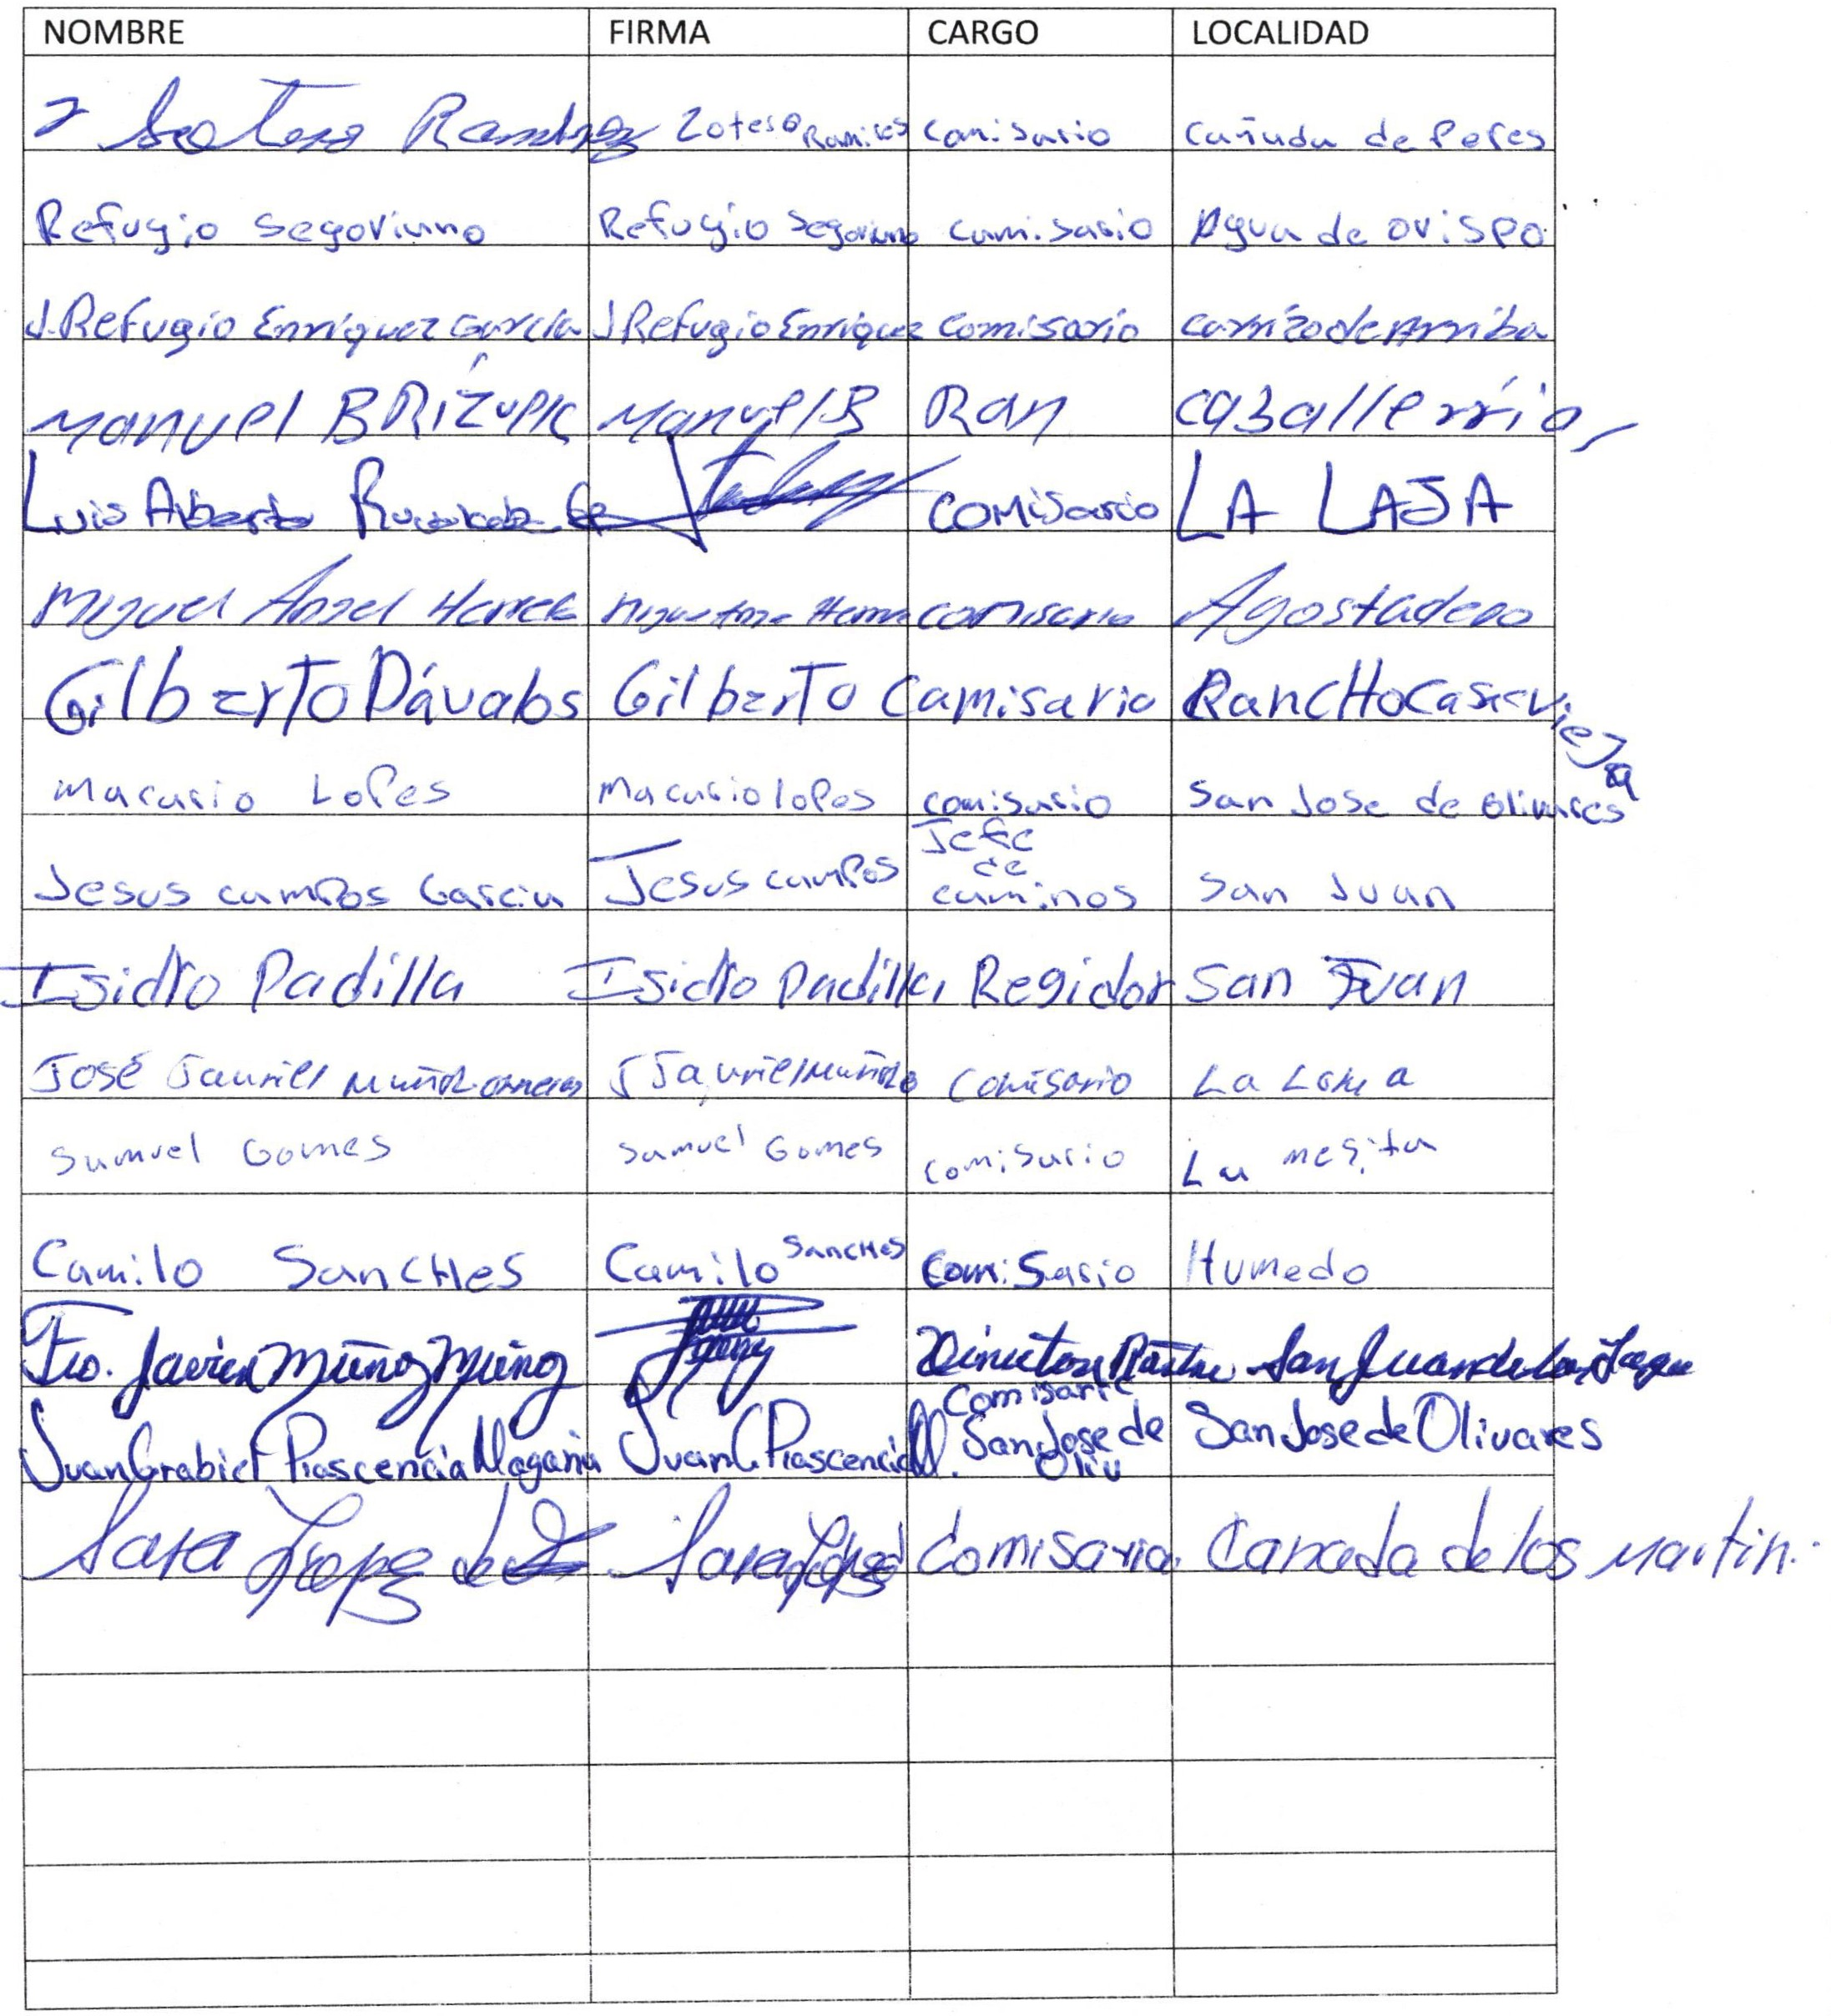 NOMBRE FIRMA CARGO LOCALIDAD
Ramirez Zotero Ramires comisario cañada de Peres
Refugio segoviano Refugio Segoviano comisario Agua de ovispo
J. Refugio Enriquez Garcia J Refugio Enriquez comisario carrizo de Arriba
Manuel BRIZUELA Manuel B Ran caballerria
Luis Alberto comisario LA LAJA
Miguel Angel Herrera comisario Agostadero
Gilberto Dávalos Gilberto Camisario RancHo casa vieja
macario Lopes macario lopes comisario San Jose de olivares
Jesus campos Garcia Jesus campos Jefe de caminos San Juan
Isidro Padilla Isidro Padilla Regidor San Juan
José Jauriel Muñoz J Jauriel Muñoz comisario La Loma
Samuel Gomes Samuel Gomes comisario La mesita
Camilo SancHes Camilo SancHes comisario Humedo
Fco. Javier Muñoz Muñoz Director Rastro San Juan de los Lagos
Juan Grabiel Plascencia Magaña Juan G Plascencia M. Comisario San Jose de Oliv San Jose de Olivares
Sara Lopez Sara Lopez Comisaria Canada de los Martin.